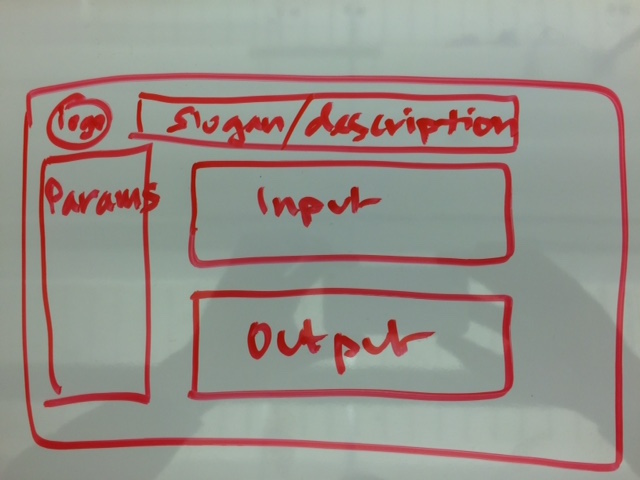 logo
slogan/description
Params
Input
Output